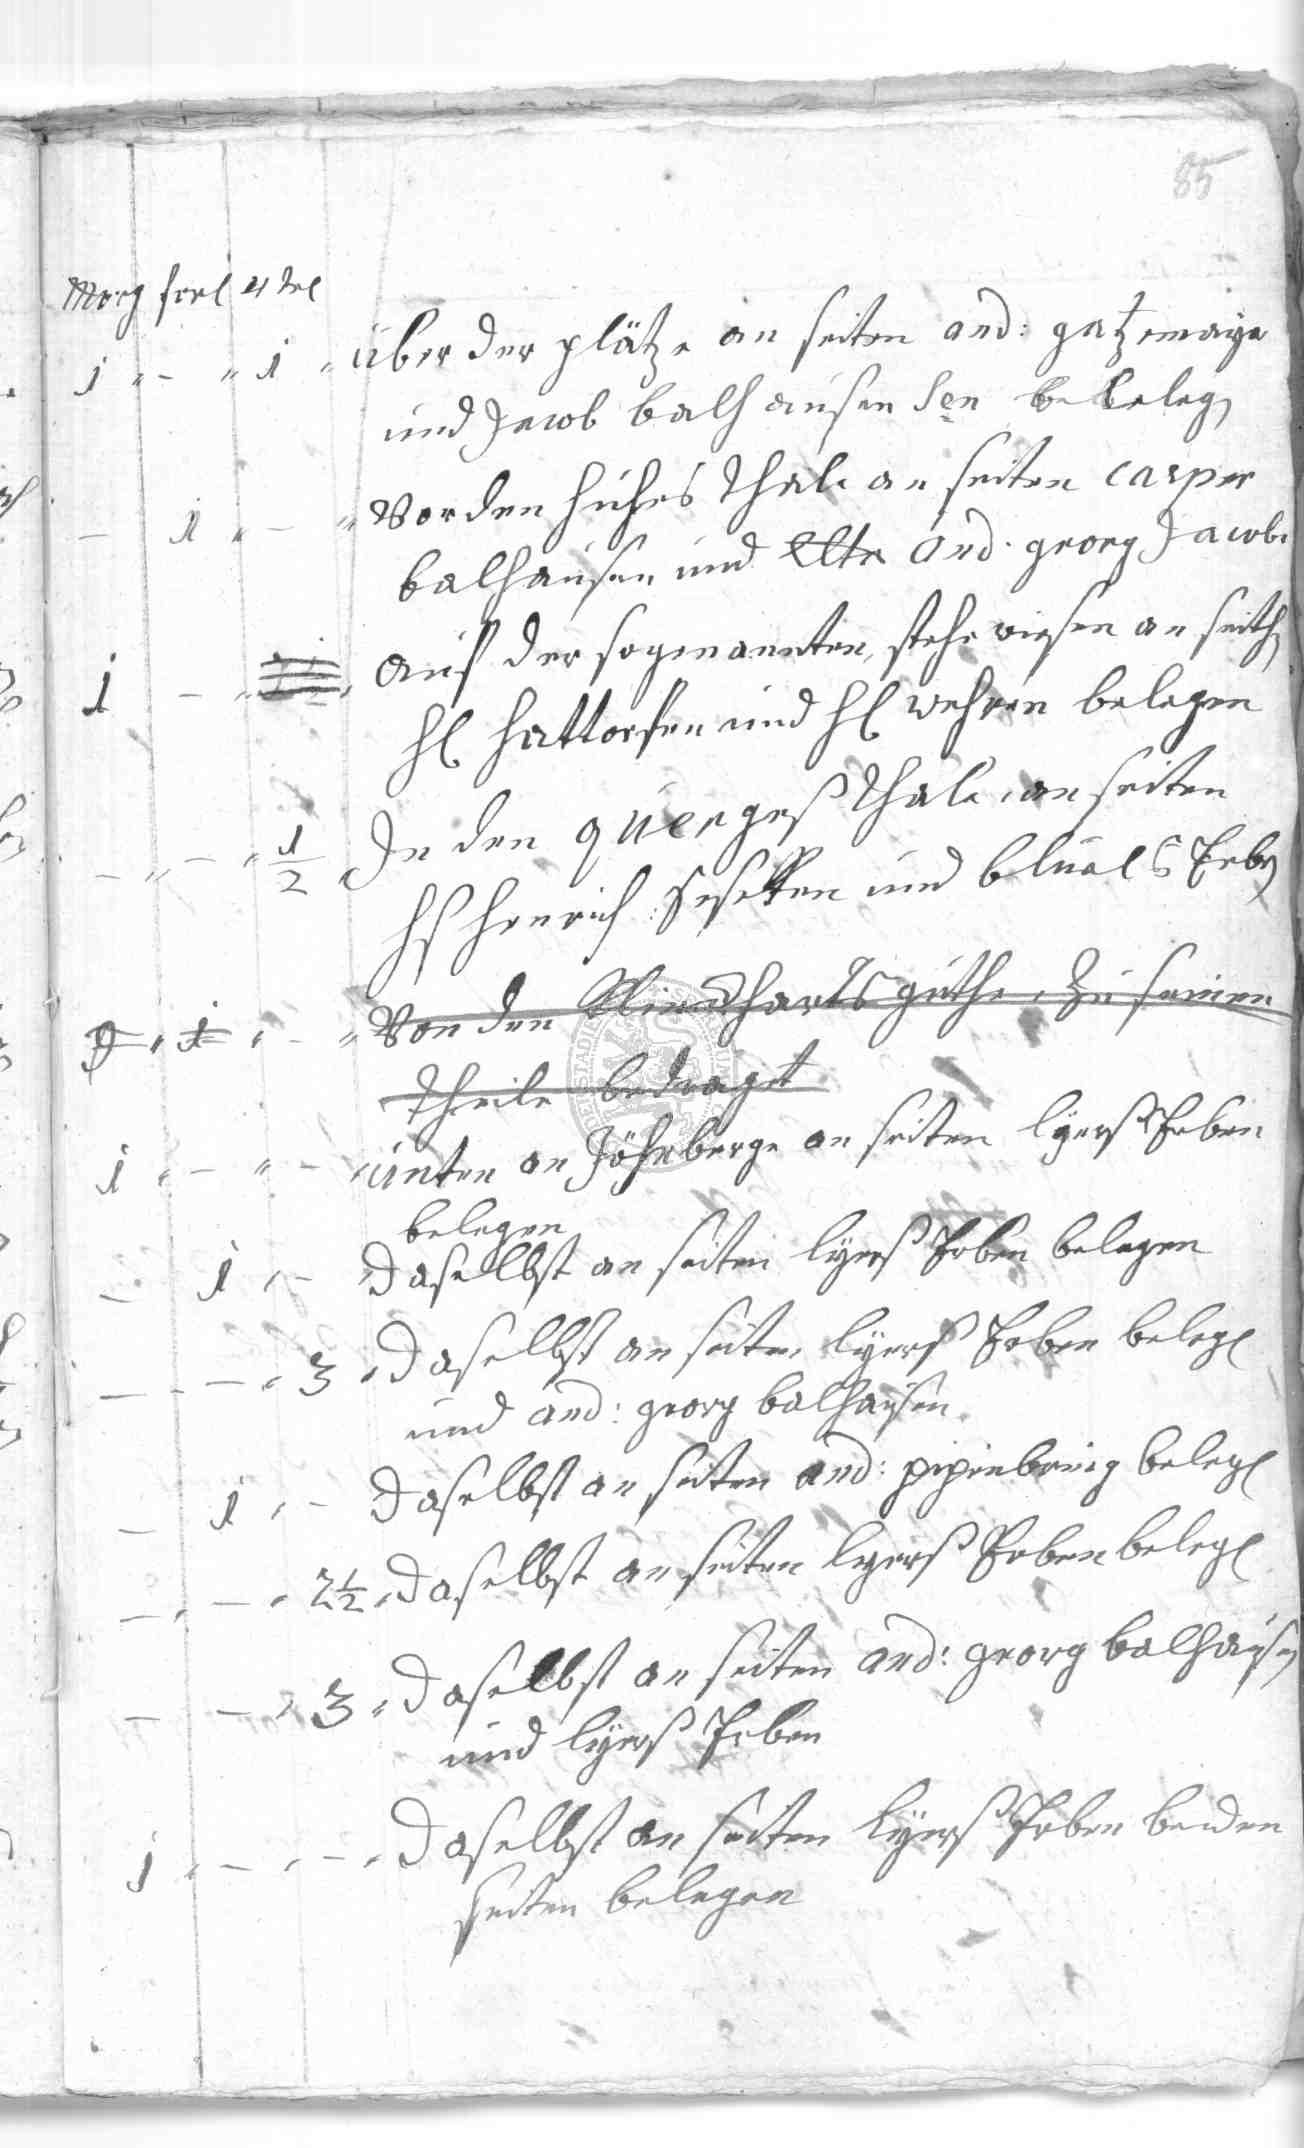 85
Morg forl 4 tel
1 " - " 1 " über der plätze an seiten and: gatzemaye
und Jacob balhausen Sen belegen
- 1 " - " Vor den hühes thale an seiten Casper
balhausen und And. georg Jacob
1 - " auf der sogenannten, stehe wiesen an seith
Hl Hattorfen und Hl wehren belegen
- " - " 1/2 In den quergeß thale, an seiten
Henrich und Erben
" 1 " - " Von den güthe, zu seinen
theile bedraget
1 " - " - " unten an Föhrberge an seiten lyerß Erben
belegen
- 1 " - daselbst an seiten lyerß Erben belegen
- - " 3 " daselbst an seiten lyerß Erben belegl
und and: georg balhausen
- 1 " - daselbst an seiten and: pipenbring belegl
- " - " 2½ " daselbst an seiten lyerß Erben belegl
- - " 3 " daselbst an seiten and: georg balhausen
und lyerß Erben
1 " - " - " daselbst an seiten lyerß Erben beiden
seiten belegen